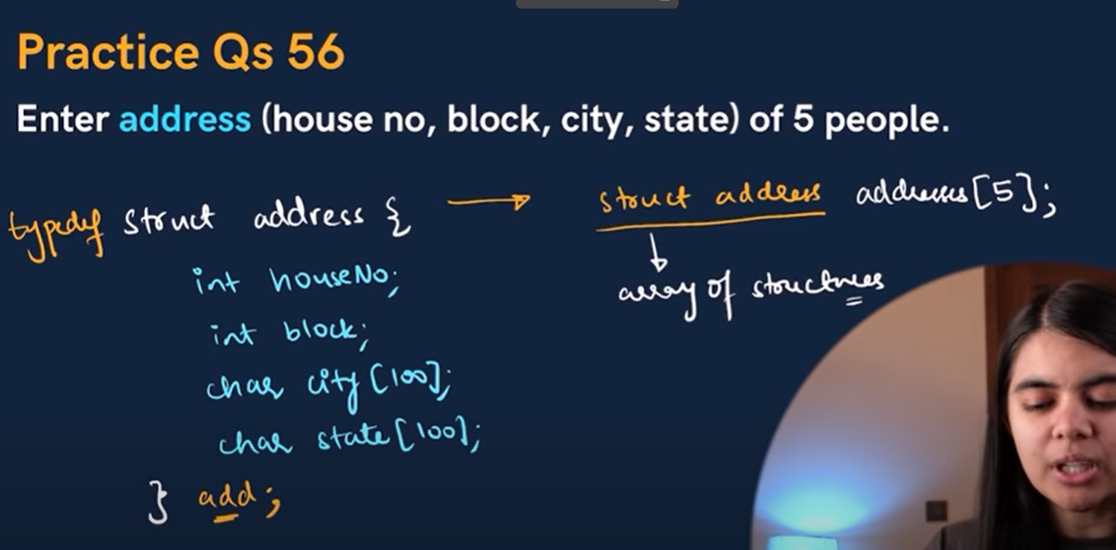 Practice Qs 56
Enter address (house no, block, city, state) of 5 people.
typedef struct address {
int houseNo;
int block;
char city [100];
char state [100];
} add;
struct address addresses [5];
array of structures